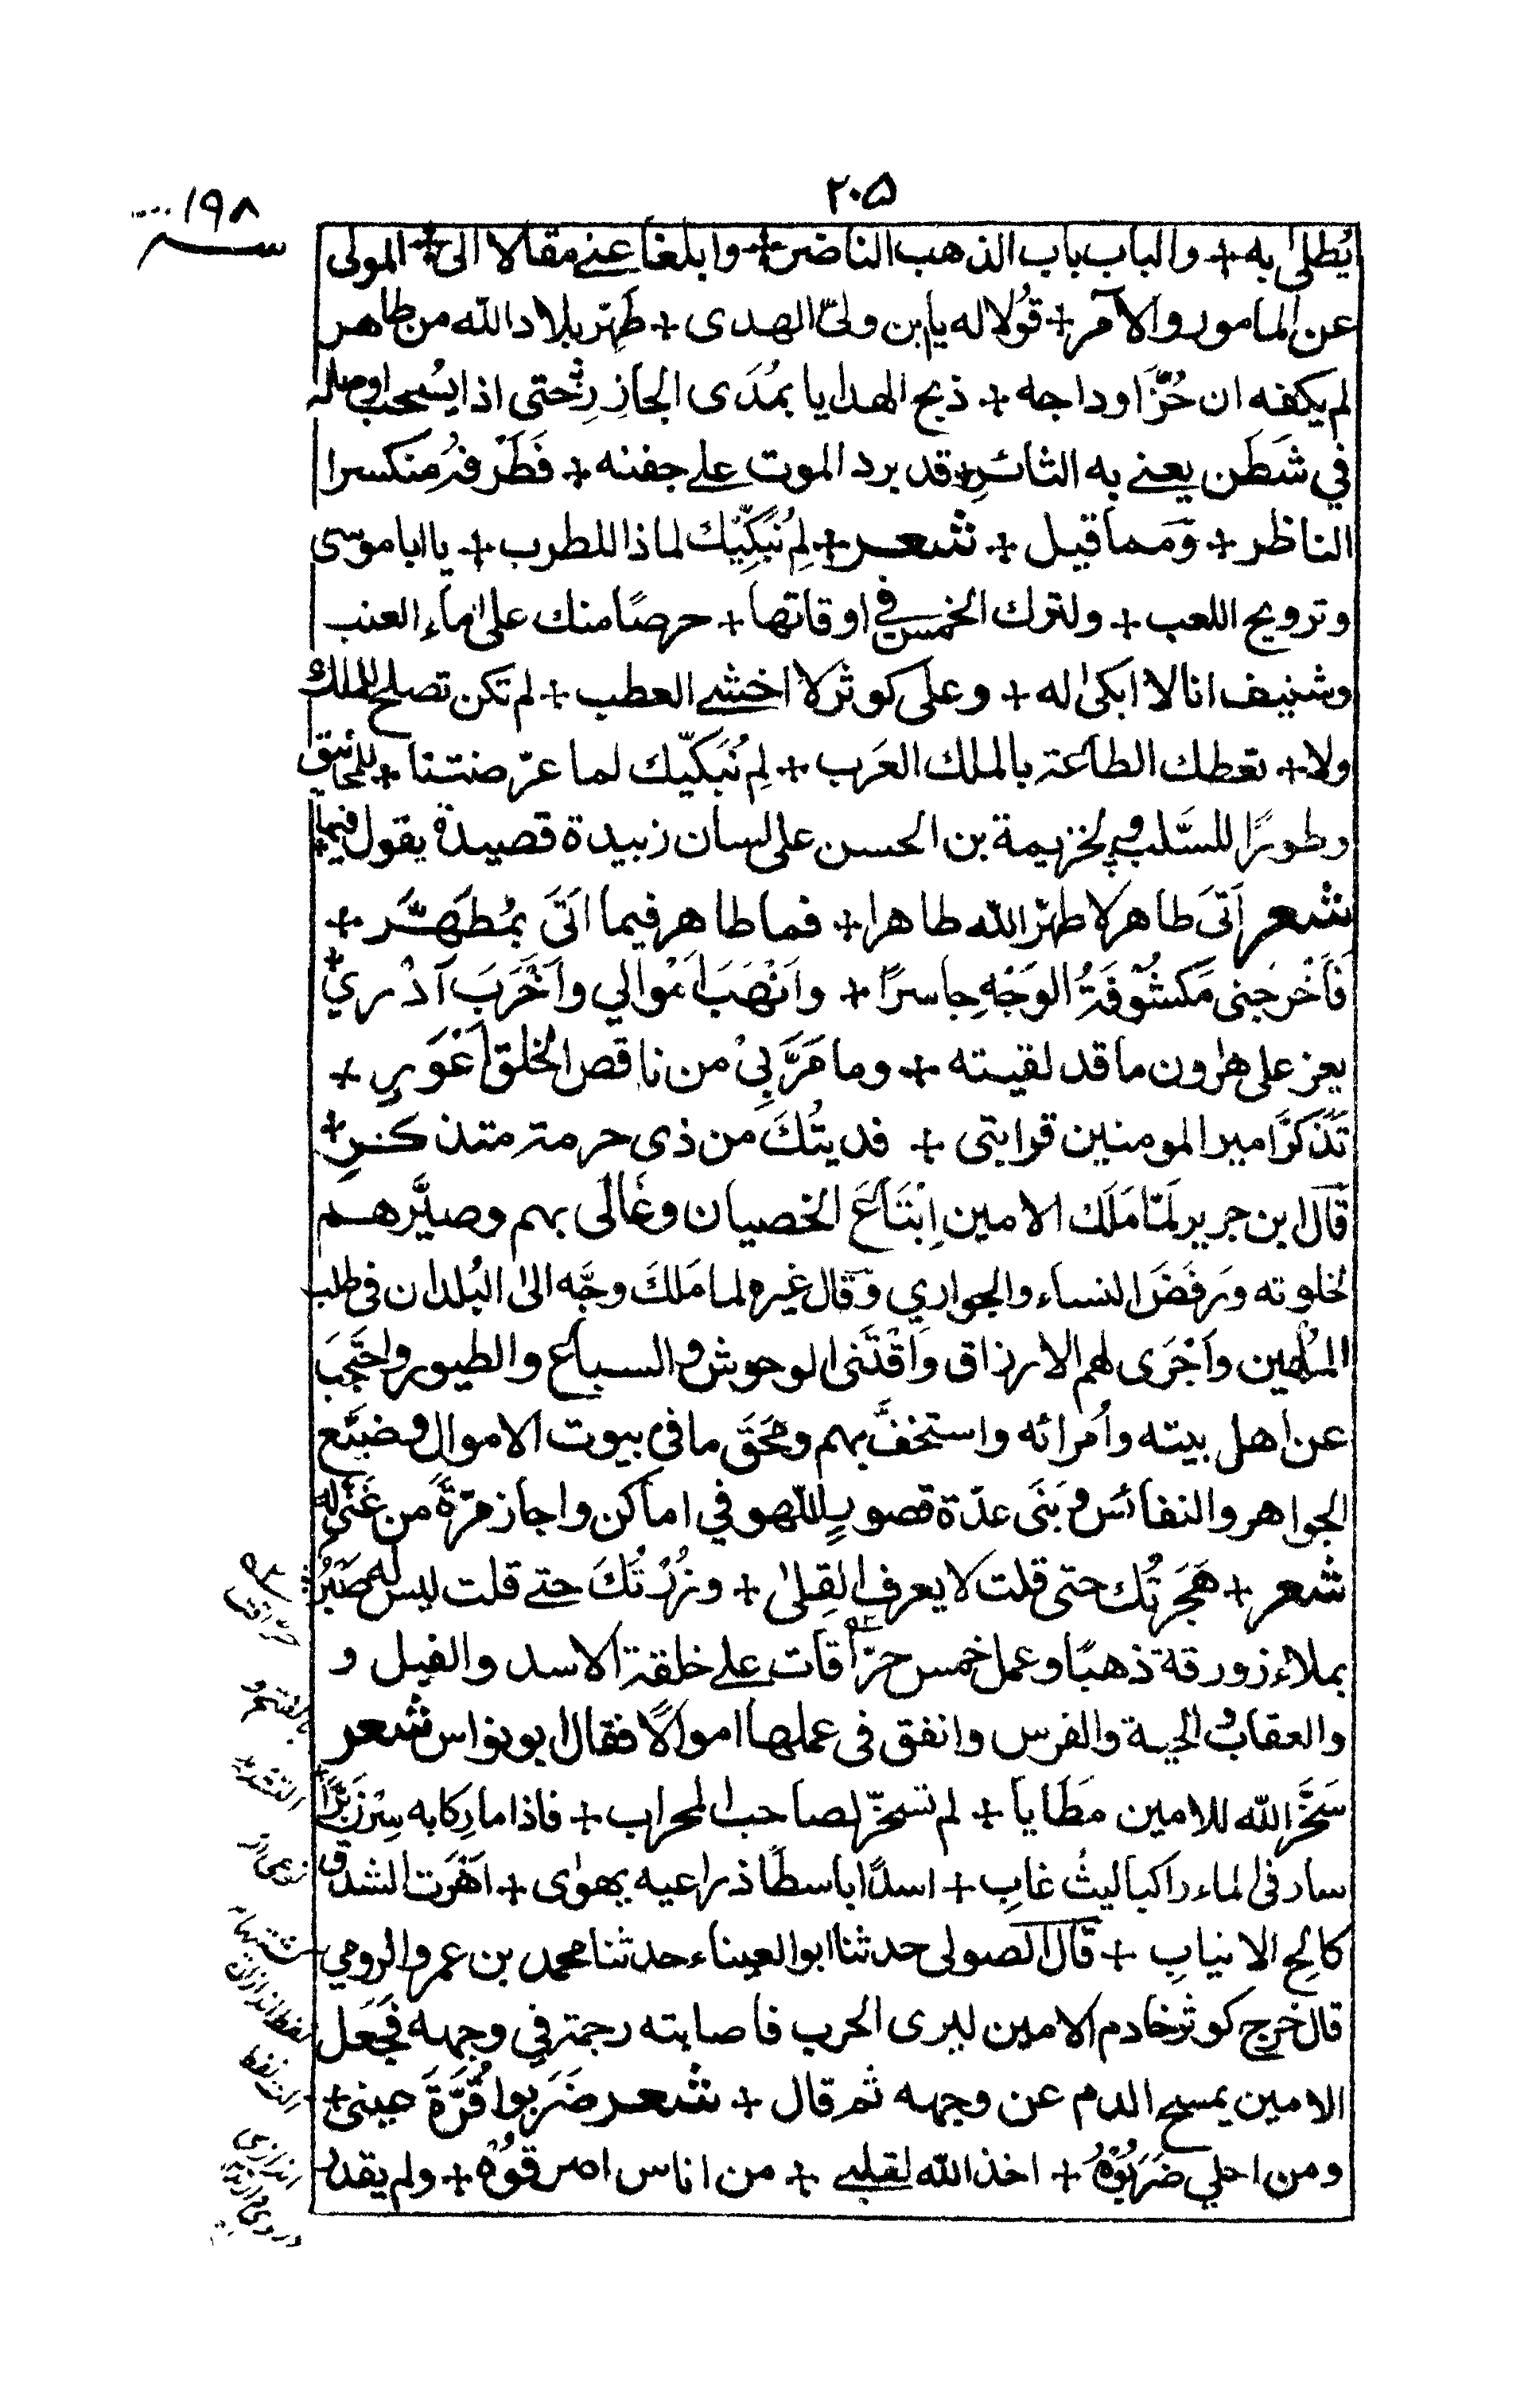 ٢٠٥
١٩٨
يُطلىٰ به + والباب باب الذهب الناضر + وابلغا عنے مقالا الى + المولى
عن المامور والآمر + قُولا له يا بن ولىّ الهدى + طَهِّر بلاد الله من طاهر
لم يكفه ان حُزَّ اوداجه + ذبح الهدايا بمُدَى الجازِرِ + حتى اذا يسُحب اوصاله
في شَطَن يعنے به الثائرِ + قد برد الموت علے جفنه + فَطَرْفُه منكسر
الناظر + وَمما قيل + شعر + لِم نُبَكِّيك لماذا للطرب + يا ابا موسى
وترويح اللعب + ولترك الخمس فے اوقاتها + حرصًا منك علىٰ ماءِ العنب
وشنيف انا لا ابكىٰ له + وعلى كوثر لا اخشے العطب + لم تكن تصلح للملك
ولا + تعطك الطاعة بالملك العَرب + لِم نُبَكِّيك لما عرّضتنا + للمجانيق
وطورًا للسَّلب ولخزيمة بن الحسن على لسان زبيدة قصيدة يقول فيها +
شعر اَتىَ طاهر لا طهّر الله طاهرا + فما طاهر فيما اَتَى بمُطَهَّرِ +
فَاَخْرجَنى مَكشُوْفَةَ الوَجْهِ حاسرًا + واَنْهَبَ اَمْوالي واَخْرَبَ آدْرِيْ +
يعز على هٰرون ما قد لقيته + وما مَرَّ بِيْ من ناقص الخلق اَعْوَرِ +
تَذَكَّرْ امير المومنين قرابتى + فديتُكَ من ذى حرمة متذكرِ +
قَالَ ابن جرير لَمّا مَلَك الامين اِبْتَاعَ الخصيان وغَالَى بهم وصيَّرهم
لخلوته ورَفَضَ النساء والجواري وَقَال غيره لما مَلَكَ وجَّه الى البُلدان فى طلب
المُلهين واَجْرَى لهم الارزاق واَقْتَنى الوحوش والسباع والطيور واحتَجَبَ
عن اهل بيته واُمرائه واستخفَّ بهم ومَحَقَ ما في بيوت الاموال وضيَّع
الجواهر والنفائس وبَنَى عدّة قصورٍ للّهو في اماكن واجاز مرّةً من غَنّى له
شعر + هَجَرتُك حتى قلت لا يعرف القِلىٰ + وزُرْتُكَ حتے قلت ليس له صَبْرُ
بملاء زورقة ذهبًا وعمل خمس حرّاقات علے خلقة الاسد والفيل و
والعقاب والحية والفرس وانفق فى عملها اموالًا فقال ابو نواس شعر
سَخَّر الله للامين مَطَايا + لم تسخّر لصاحب المحراب + فاذا ما ركابه سِرْنَ بَرًّا +
سار فى الماء راكبا ليثُ غابِ + اسدًا باسطًا ذراعيه يهوٰى + اَهْرَت الشدق
كالِح الانيابِ + قال الصولى حدثنا ابو العيناء حدثنا محمد بن عمر والرومي
قال خرج كوثر خادم الامين ليرى الحرب فاصابته رجمة في وجهه فجَعَل
الامين يمسح الدم عن وجهه ثم قال + شعر ضَرَبوا قُرَّةَ عينى +
ومن اجلي ضَرَبُوْهُ + اخذ الله لقلبے + من اناس احرقُوْهُ + ولم يقدر
حرّاقت
بالفتح و
التشديد